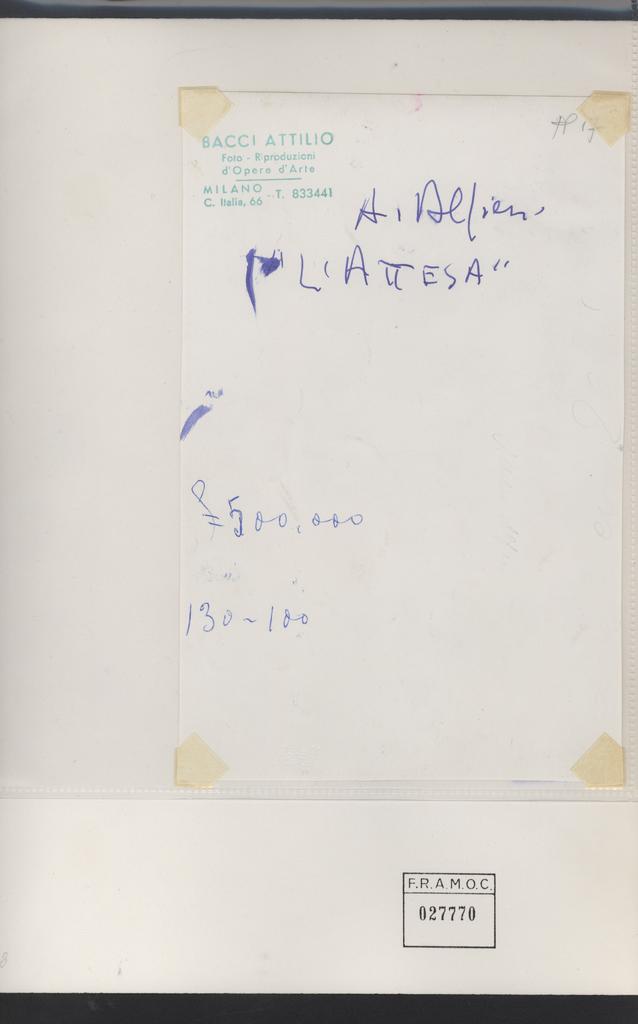 BACCI ATTILIO
Foto - Riproduzioni
d'Opere d'Arte
MILANO - T. 833441
C. Italia, 66
AP 17
A. Alfieri
"L'ATTESA"
£ 500.000
130-100
F.R.A.M.O.C.
027770